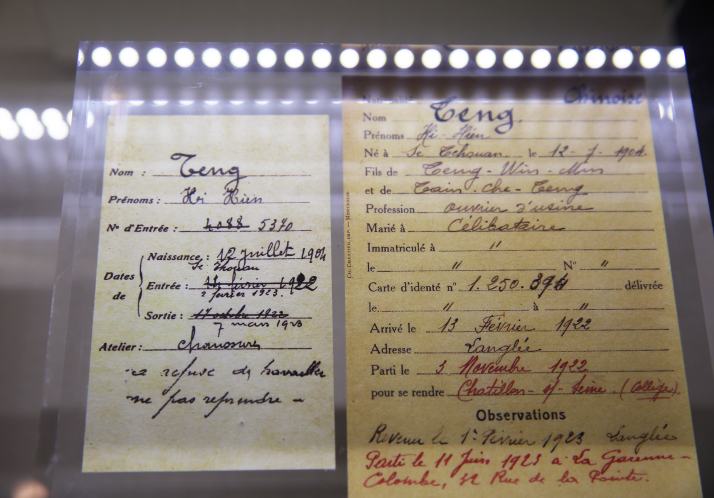 Nom : Teng
Prénoms : Hi Hien
N° d'Entrée : 4088 5370
Naissance : 12 juillet 1904
Se Tchouan
Dates de
Entrée : 14 février 1922
2 février 1923.
Sortie : 17 octobre 1922
7 mars 1923
Atelier : Chaussures
a refusé de travailler
ne pas reprendre -
Chinoise
Nom Teng.
Prénoms Hi-Hien
Né à Se Tchouan le 12-7-1904
Fils de Teng-Win-Min
et de Tain-Che-Teng
Profession ouvrier d'usine
Marié à Célibataire
Immatriculé à "
le " N° "
Carte d'identé n° 1.250.394 délivrée
le " à "
Arrivé le 13 Février 1922
Adresse Langlée
Parti le 3 Novembre 1922
pour se rendre Chatillon-s/-Seine. (Collège)
Observations
Revenu le 1er Février 1923 Langlée
Parti le 11 Juin 1923 à La Garenne-
Colombe, 32 Rue de la Pointe.